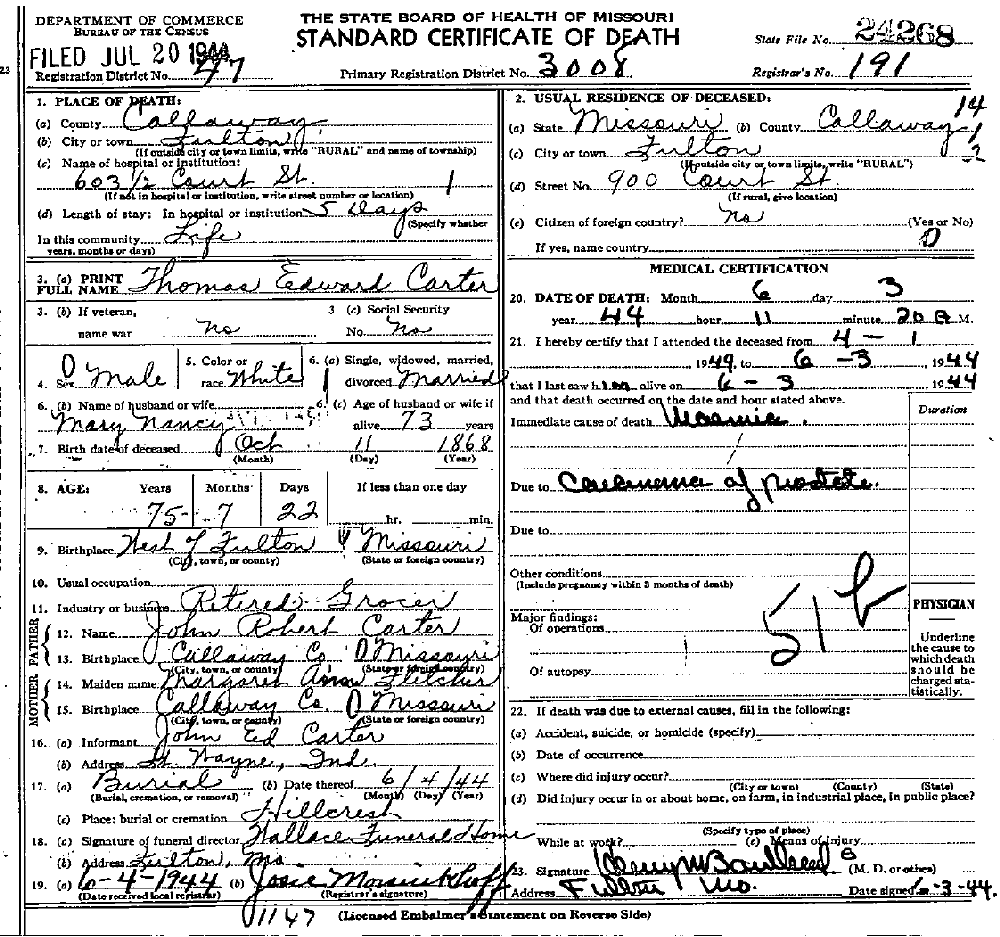 DEPARTMENT OF COMMERCE
BUREAU OF THE CENSUS
THE STATE BOARD OF HEALTH OF MISSOURI
STANDARD CERTIFICATE OF DEATH
State File No. 24268
FILED JUL 20 1944
Registration District No. 47
Primary Registration District No. 3008
Registrar's No. 191
23
1. PLACE OF DEATH:
(a) County Callaway
(b) City or town Fulton
(If outside city or town limits, write "RURAL" and name of township)
(c) Name of hospital or institution:
603 1/2 Court St. 1
(If not in hospital or institution, write street number or location)
(d) Length of stay: In hospital or institution 5 days
(Specify whether
In this community Life
years, months or days)
2. USUAL RESIDENCE OF DECEASED: 14
(a) State Missouri (b) County Callaway
(c) City or town Fulton
(If outside city or town limits, write "RURAL")
(d) Street No. 900 Court St.
(If rural, give location)
(e) Citizen of foreign country? No (Yes or No)
0
If yes, name country
3. (a) PRINT FULL NAME Thomas Edward Carter
3. (b) If veteran, name war No
3 (c) Social Security No. No
4. Sex Male
5. Color or race White
6. (a) Single, widowed, married, divorced Married
6. (b) Name of husband or wife Mary Nancy
6. (c) Age of husband or wife if alive 73 years
7. Birth date of deceased Oct 11 1868
(Month) (Day) (Year)
8. AGE: Years Months Days If less than one day
75 7 22 hr. min.
9. Birthplace West of Fulton Missouri
(City, town, or county) (State or foreign country)
10. Usual occupation
11. Industry or business Retired Grocer
FATHER
12. Name John Robert Carter
13. Birthplace Callaway Co. Missouri
(City, town, or county) (State or foreign country)
MOTHER
14. Maiden name Margaret Ann Fletcher
15. Birthplace Callaway Co. Missouri
(City, town, or county) (State or foreign country)
16. (a) Informant John Ed Carter
(b) Address Ft. Wayne, Ind.
17. (a) Burial (b) Date thereof 6/4/44
(Burial, cremation, or removal) (Month) (Day) (Year)
(c) Place: burial or cremation Hillcrest
18. (a) Signature of funeral director Wallace Funeral Home
(b) Address Fulton, Mo.
19. (a) 6-4-1944 (b) Josie
(Date received local registrar) (Registrar's signature)
MEDICAL CERTIFICATION
20. DATE OF DEATH: Month 6 day 3
year 44 hour 11 minute 20 a M.
21. I hereby certify that I attended the deceased from 4 - 1
1944, to 6 - 3, 1944
that I last saw him alive on 6 - 3 1944
and that death occurred on the date and hour stated above.
Duration
Immediate cause of death Uraemia.
Due to Carcinoma of prostate.
Due to
Other conditions
(Include pregnancy within 3 months of death)
51b
Major findings:
Of operations
Of autopsy
PHYSICIAN
Underline the cause to which death should be charged statistically.
22. If death was due to external causes, fill in the following:
(a) Accident, suicide, or homicide (specify)
(b) Date of occurrence
(c) Where did injury occur?
(City or town) (County) (State)
(d) Did injury occur in or about home, on farm, in industrial place, in public place?
(Specify type of place)
While at work? (e) Means of injury
23. Signature (M. D. or other)
Address Fulton Mo. Date signed 6-3-44.
1147
(Licensed Embalmer's Statement on Reverse Side)